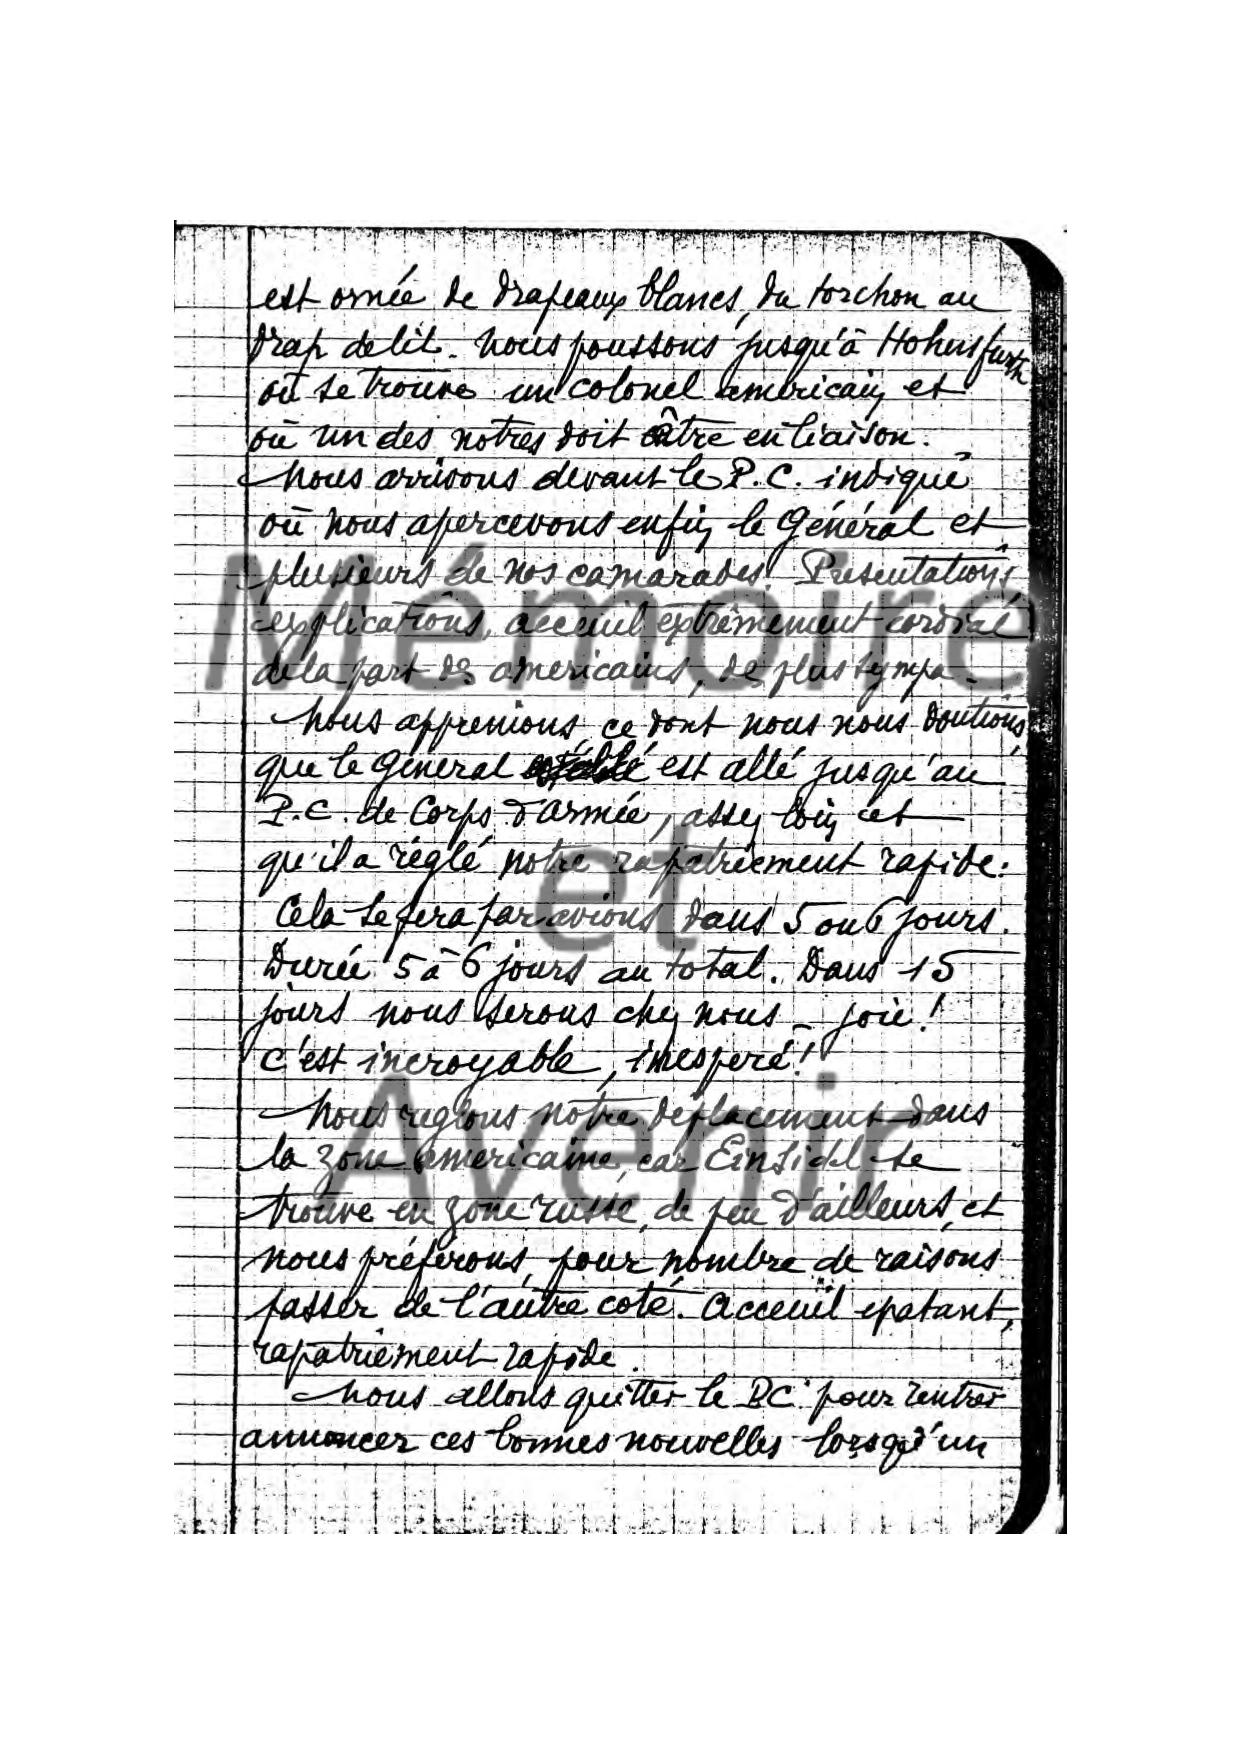 est ornée de drapeaux blancs, du torchon au
drap de lit. Nous poussons jusqu'à Hohensfurth
où se trouve un colonel americain et
où un des notres doit être en liaison.
Nous arrivons devant le P.C. indiqué
où nous apercevons enfin le Général et
plusieurs de nos camarades. Présentations,
explications, acceuil extrêmement cordial
de la part des americains, des plus sympa.
Nous apprenions, ce dont nous nous doutions,
que le Général est allé jusqu'au
P.C. de Corps d'armée, assez loin et
qu'il a réglé notre rapatriement rapide:
Cela se fera par avions dans 5 ou 6 jours.
Durée 5 à 6 jours au total. Dans 15
jours nous serons chez nous - joie!
C'est incroyable, inesperé!
Nous reglons notre deplacement dans
la zone americaine, car Einsidel se
trouve en zone russe, de peu d'ailleurs, et
nous préferons, pour nombre de raisons
passer de l'autre coté. Acceuil epatant,
rapatriement rapide.
Nous allons quitter le P.C. pour rentrer
annoncer ces bonnes nouvelles lorsqu'un
Mémoire
et
Avenir